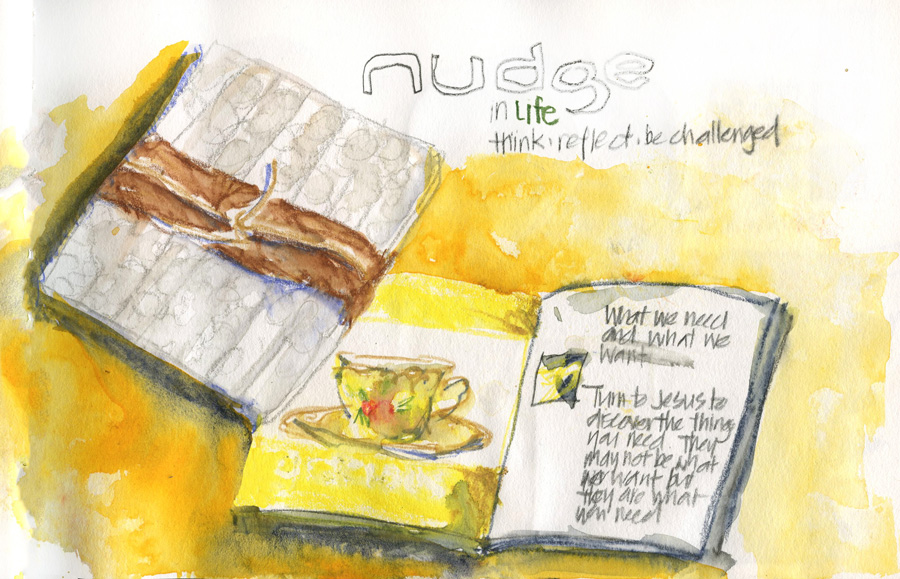 nudge
in Life
think, reflect, be challenged
What we need
and what we
want
Turn to Jesus to
discover the things
you need. They
may not be what
you want but
they are what
you need